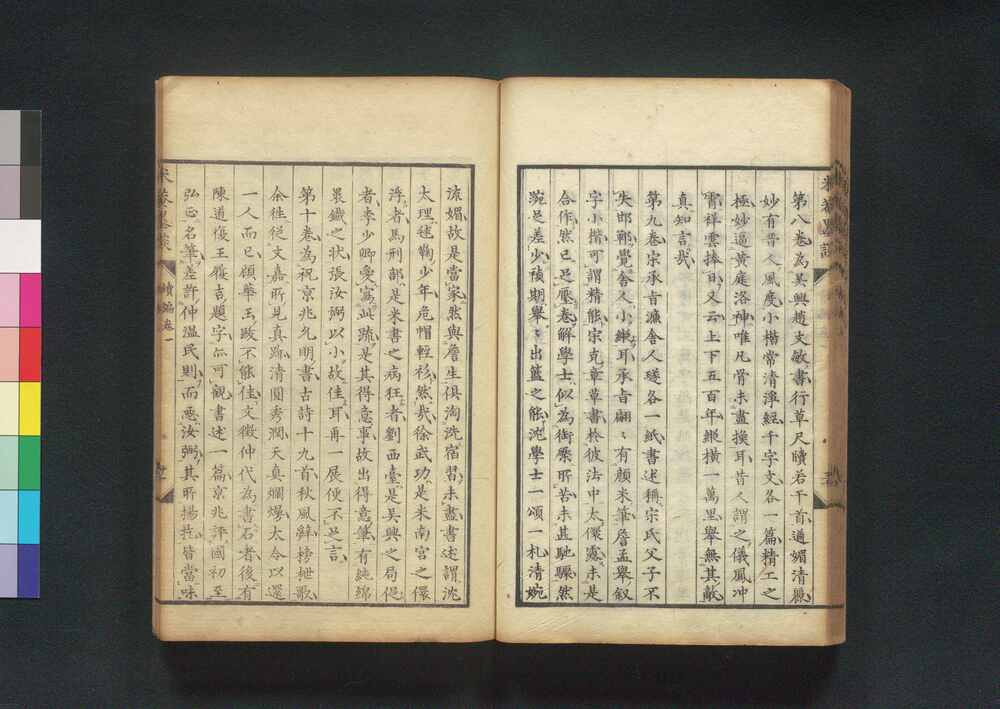 第八卷為吳興趙文敏書行草尺牘若干首遒媚清麗
妙有晉人風度小楷常清淨經千字文各一篇精工之
極妙逼黃庭洛神唯凡骨未盡換耳昔人謂之儀鳳冲
霄祥雲捧日又云上下五百年縱橫一萬里舉無其敵
真知言哉
第九卷宋承旨濂舍人璲各一紙書述稱宋氏父子不
失邯鄲覺舍人小嫩耳承旨翩〻有顏米筆詹孟舉叙
字小楷可謂精能宋克章草書於彼法中太儇露未是
合作然已足壓卷解學士似為銜橛所苦未甚馳驟然
踠足差少禎期舉〻出籃之能沈學士一頌一札清婉
流媚故是當家然與詹生俱淘洗宿習未盡書述謂沈
太理毬鞠少年危帽輕衫然哉徐武功是米南宮之儇
浮者馬刑部是米書之病狂者劉西臺是吳興之局促
者李少卿受寫此疏是其得意事故出得意筆有純綿
裹鐵之狀張汝弼以小故佳耳再一展便不足言
第十卷為祝京兆允明書古詩十九首秋風辭榜枻歌
余徃從文嘉所見真跡清圓秀潤天真爛熳太令以還
一人而已顧華玉跋不能佳文徵仲代為書石者後有
陳道復王履吉題字亦可觀書述一篇京兆評國初至
弘正名筆差許仲溫民則而惡汝弼其所揚扢皆當味
續編卷一